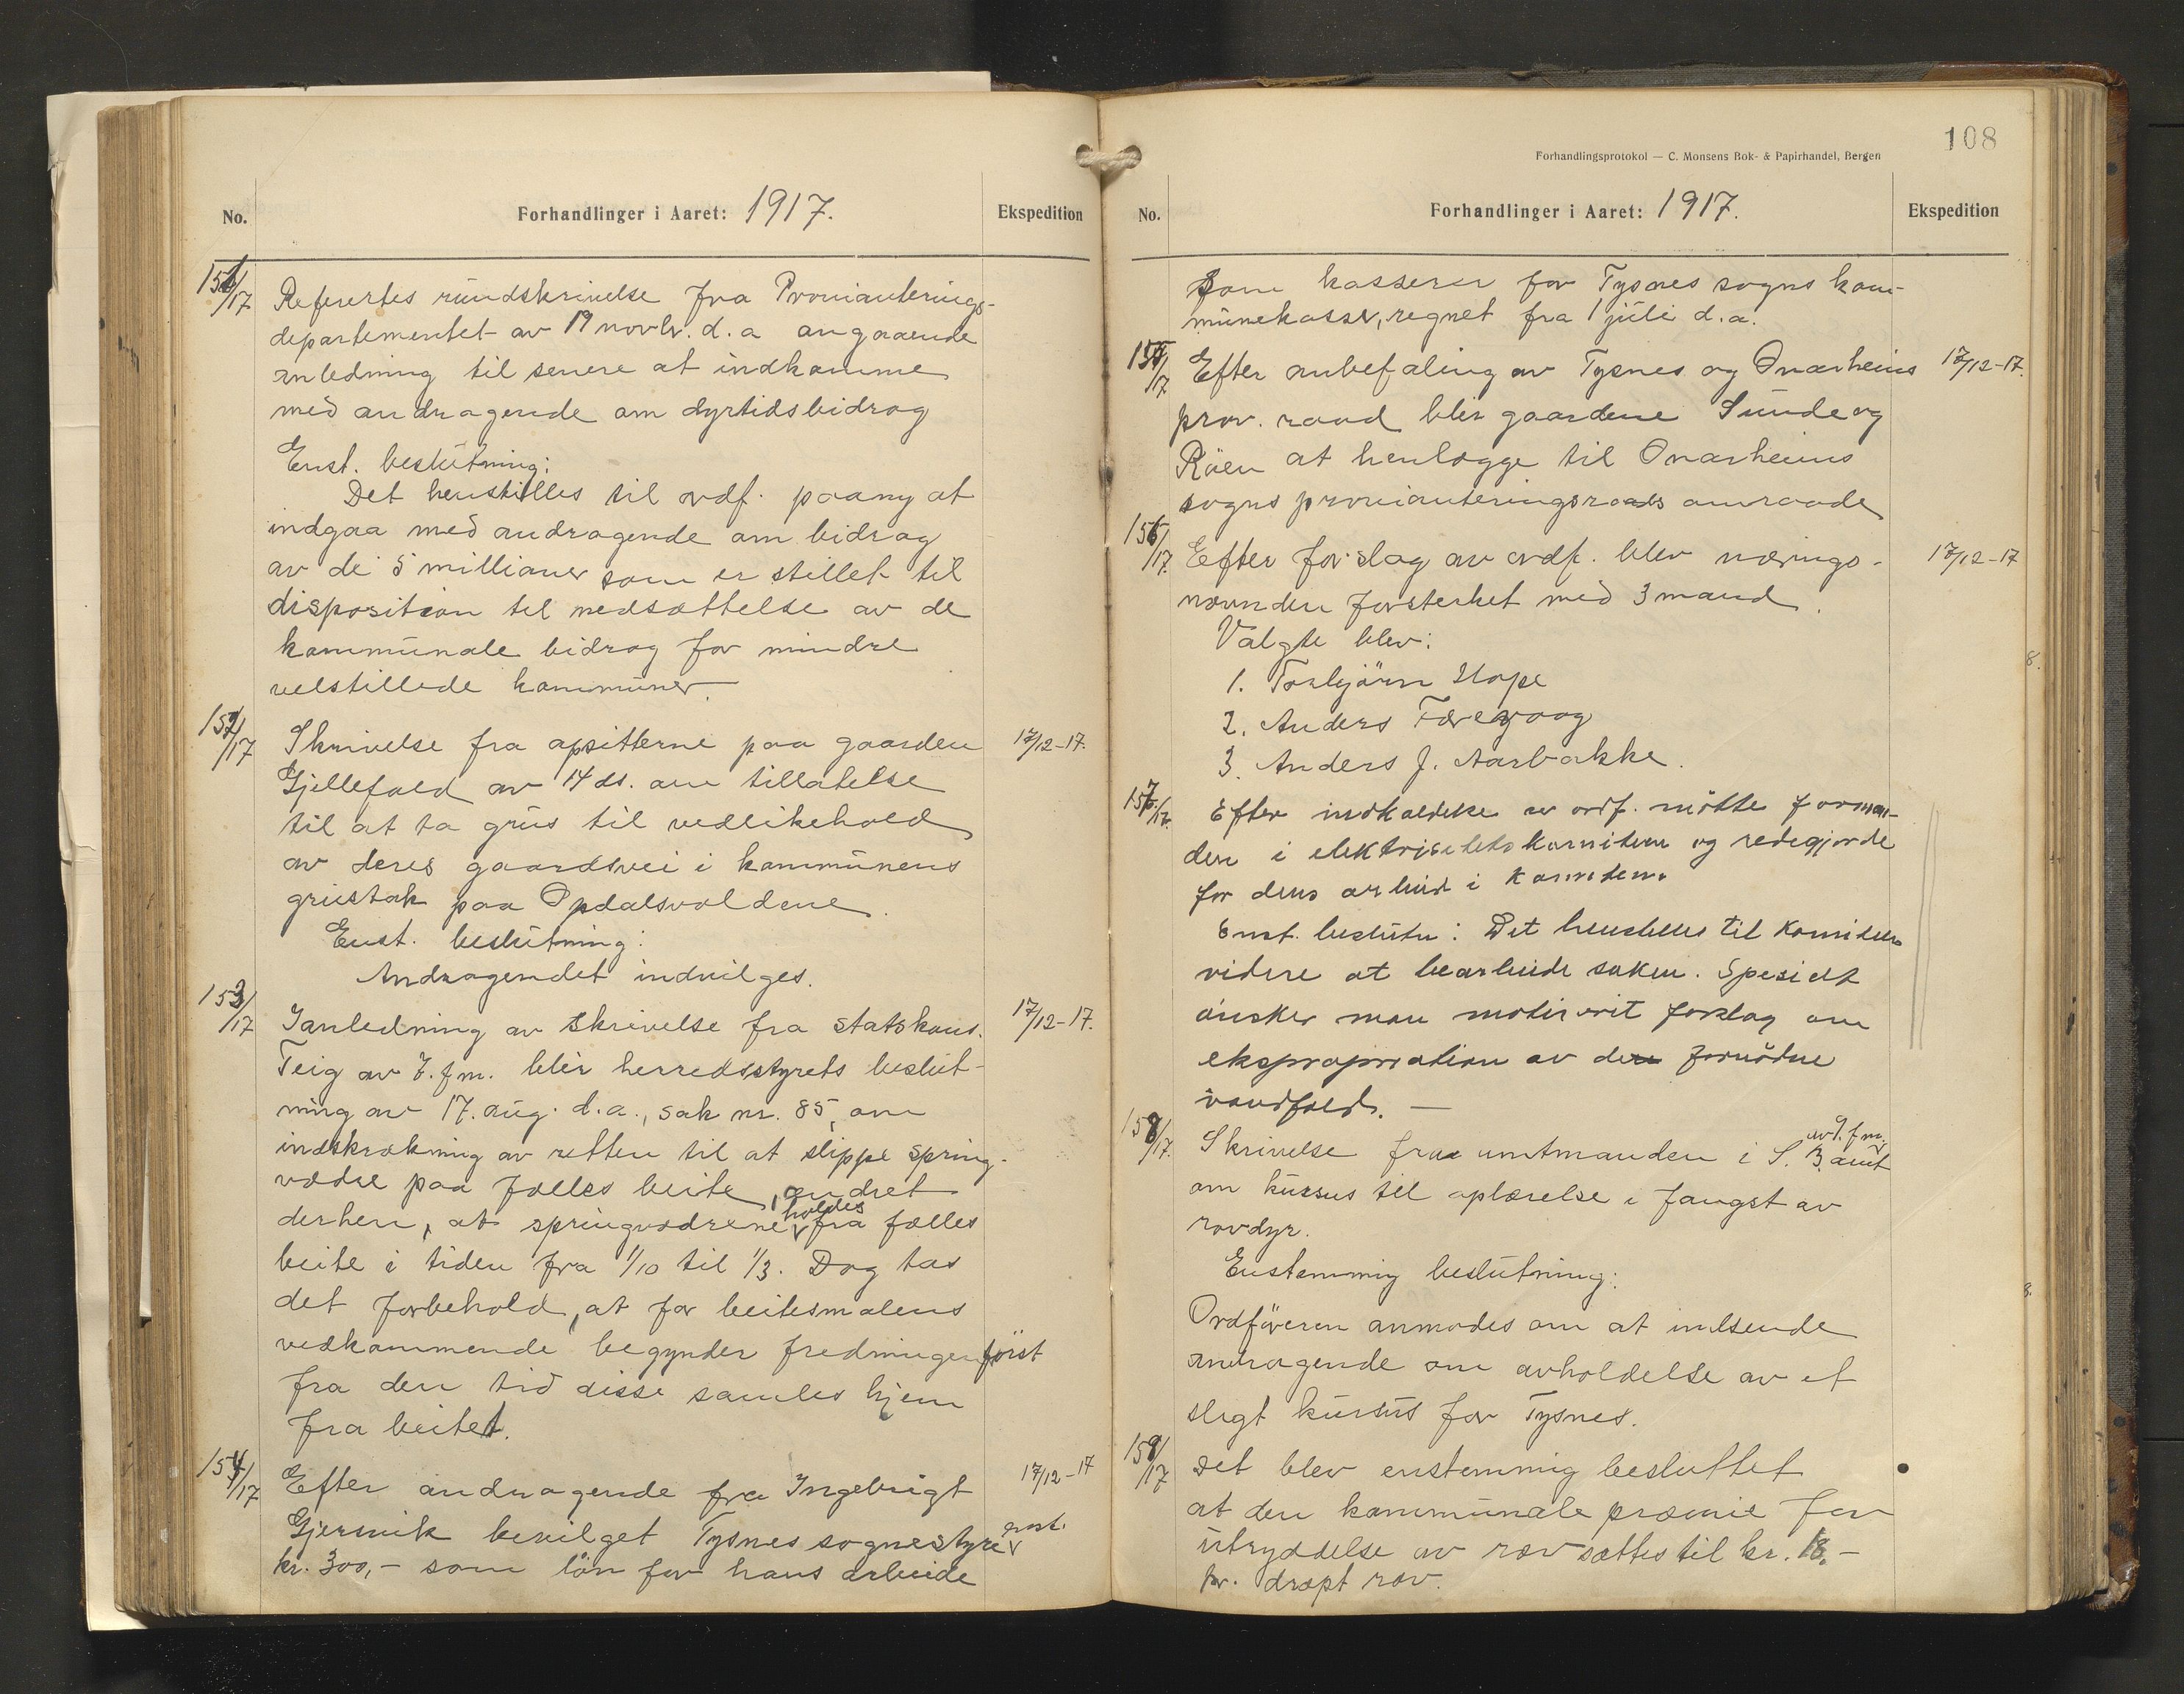 No.
Forhandlinger i Aaret: 1917.
Ekspedition
151/17
Refertes rundskrivelse fra Provianterings-
departementet av 19 novbr. d.a angaaende
anledning til senere at indkomme
med andragende om dyrtidsbidrag
Enst. beslutning:
Det henstilles til ordf. paany at
indgaa med andragende om bidrag
av de 5 millioner som er stillet til
disposition til nedsættelse av de
kommunale bidrag for mindre
velstillede kommuner.
152/17
Skrivelse fra opsitterne paa gaarden
17/12-17.
Gjellefald av 14 ds. om tillatelse
til at ta grus til vedlikehold
av deres gaardsvei i kommunens
grustak paa Opdalsvoldene.
Enst. beslutning:
Andragendet indvilges.
153/17
I anledning av skrivelse fra statskons.
17/12-17.
Teig av 7. f.m. blev herredsstyrets beslut-
ning av 17. aug. d.a., sak nr. 85, om
indskrækning av retten til at slippe spring-
vædre paa fælles beite, ændret
derhen, at springvædrene holdes fra fælles
beite i tiden fra 1/10 til 1/3. Dog tas
det forbehold, at for beitesmalens
vedkommende begynder fredningen först
fra den tid disse samles hjem
fra beitet.
154/17
Efter andragende fra Ingebrigt
17/12-17
Gjersvik bevilget Tysnes sognestyre enst.
kr. 300,- som lön for hans arbeide
108
Forhandlingsprotokol — C. Monsens Bok- & Papirhandel, Bergen
No.
Forhandlinger i Aaret: 1917.
Ekspedition
som kasserer for Tysnes sogns kom-
munekasse, regnet fra 1 juli d.a.
155/17
Efter anbefaling av Tysnes og Onarheims
17/12-17.
prov. raad blev gaardene Sunde og
Röen at henlægge til Onarheims
sogns provianteringsraads omraade
156/17.
Efter forslag av ordf. blev nærings-
17/12-17
nævnden forsterket med 3 mand.
Valgte blev:
1. Torbjörn Hope
2. Anders Færevaag
3. Anders J. Aarbakke.
157/17.
Efter indkaldelse av ordf. mötte forman-
den i elektrisitetskomiteen og redegjorde
for dens arbeid i komiteen.
Enst. beslutn: Det henstilles til komiteen
videre at bearbeide saken. Spesielt
önsker man motivert forslag om
ekspropriation av de fornödne
vandfald. —
158/17.
Skrivelse fra amtmanden i S. B. amt av 9. f.m.
om kursus til oplærelse i fangst av
rovdyr.
Enstemmig beslutning:
Ordföreren anmodes om at indsende
andragende om avholdelse av et
sligt kursus for Tysnes.
159/17
Det blev enstemmig besluttet
at den kommunale præmie for
utryddelse av ræv sættes til kr. 18,-
pr. dræpt ræv.